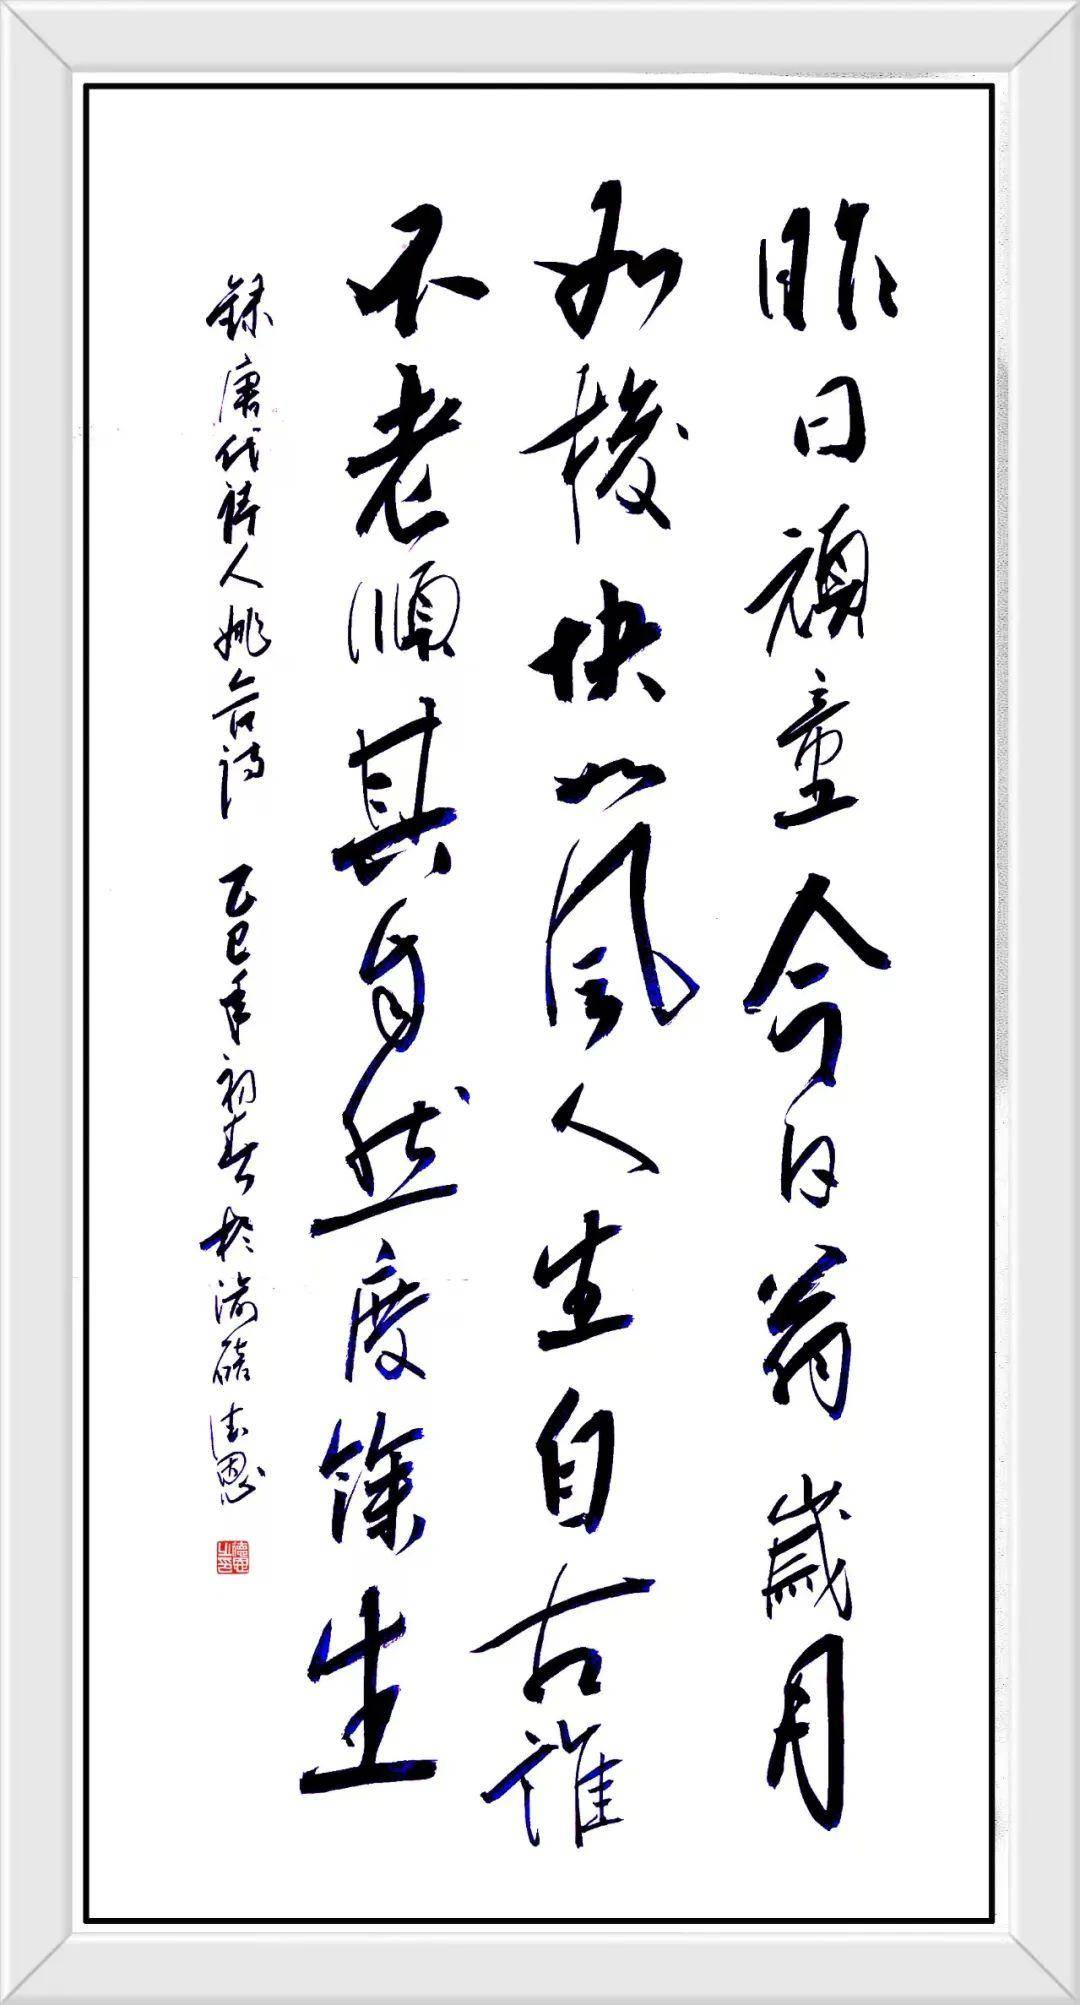 昨日頑童今日翁歲月
如梭快如風人生自古誰
不老順其自然度餘生
録唐代詩人姚合詩 乙巳年初春於渝碚德恩
德恩之印